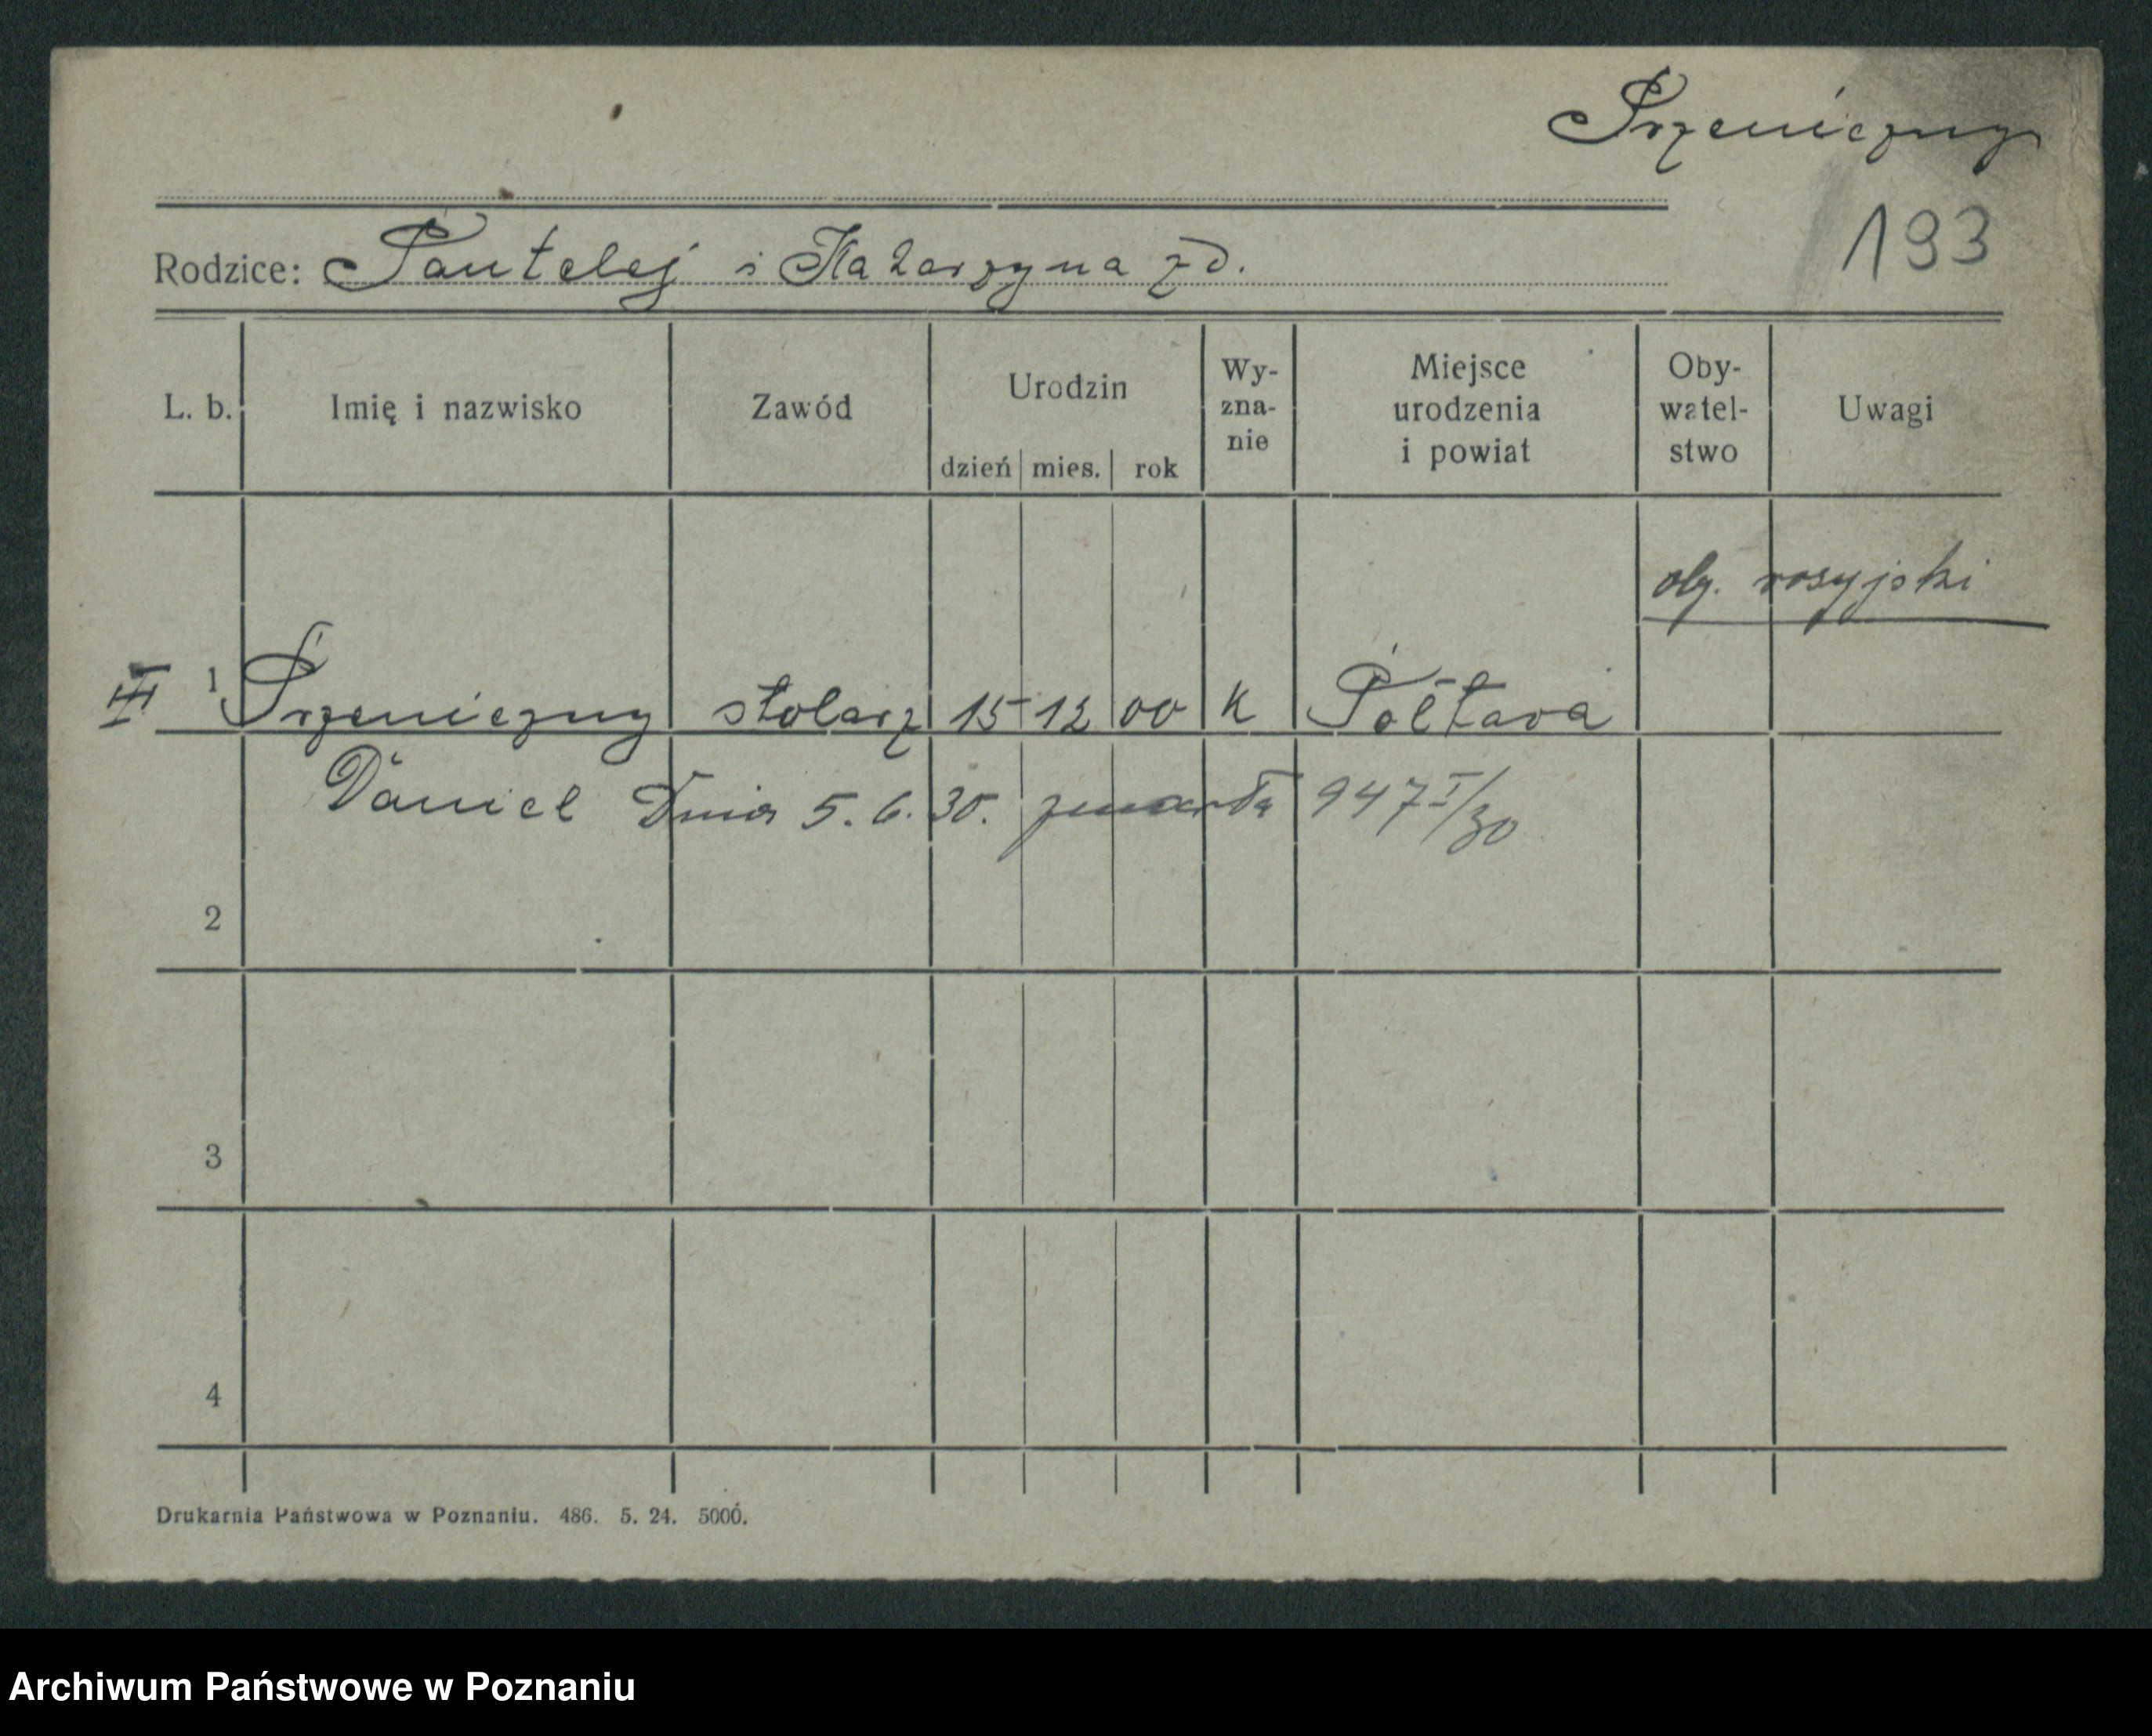 Przeniczny
193
Rodzice: Pantelej i Katarzyna zd.
L. b. Imię i nazwisko Zawód Urodzin dzień mies. rok Wy- zna- nie Miejsce urodzenia i powiat Oby- watel- stwo Uwagi
oby. rosyjski
III 1 Przeniczny stolarz 15 12 00 k Połtava
Daniel Dnia 5. 6. 30. 947 I/30
2
3
4
Drukarnia Państwowa w Poznaniu. 486. 5. 24. 5000.
Archiwum Państwowe w Poznaniu